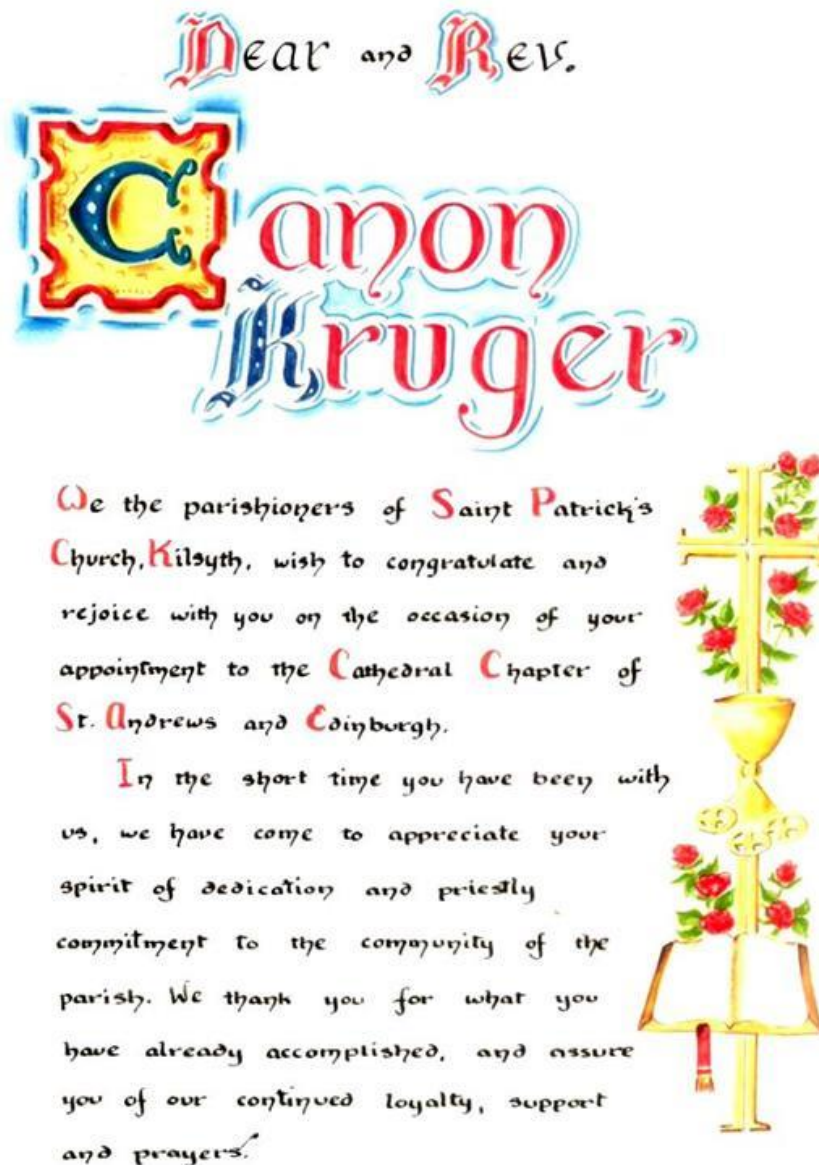 Dear and Rev.
Canon
Kruger
We the parishioners of Saint Patrick's
Church, Kilsyth, wish to congratulate and
rejoice with you on the occasion of your
appointment to the Cathedral Chapter of
St. Andrews and Edinburgh.
In the short time you have been with
us, we have come to appreciate your
spirit of dedication and priestly
commitment to the community of the
parish. We thank you for what you
have already accomplished, and assure
you of our continued loyalty, support
and prayers.